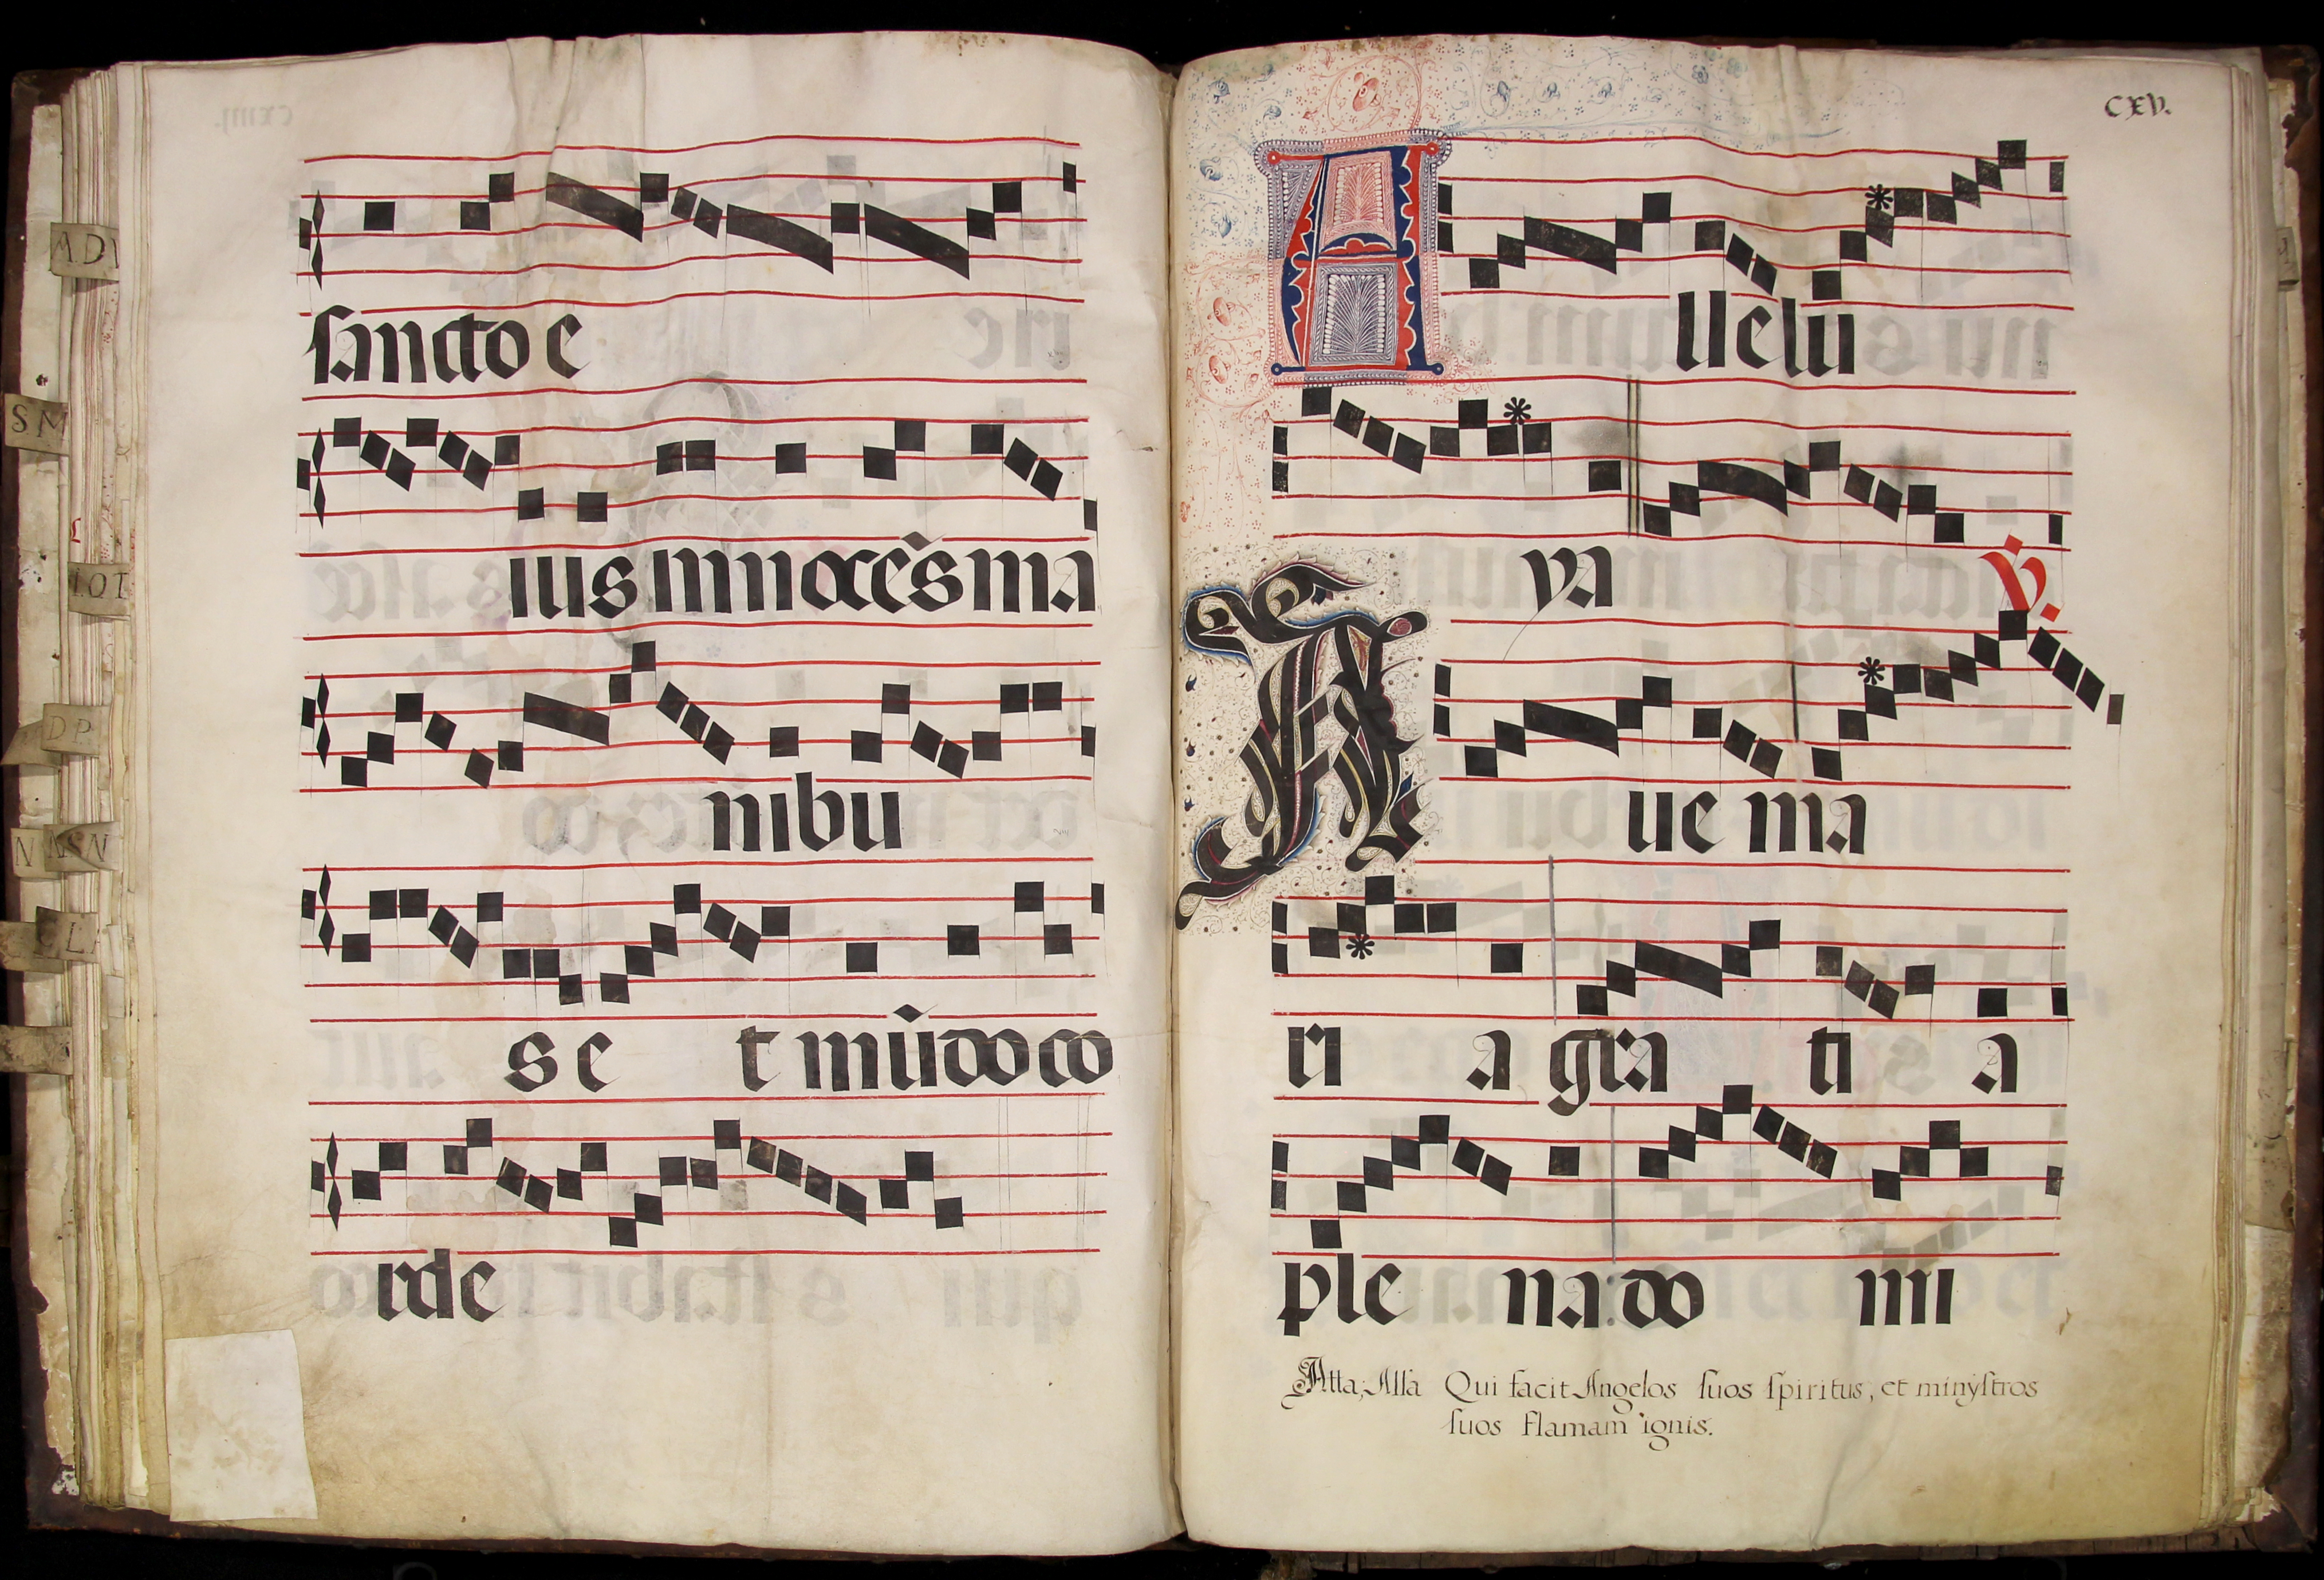 sancto e
ius innocẽs ma
nibu
s e t mũdo co
rde
CXV.
A llelui
ya ℣.
A ue ma
ri a gra ti a
ple na: do mi
Atta; Alla Qui facit Angelos suos spiritus, et minÿstros
suos flamam ignis.
AD
SM
IOT
DP
N NSN
CL